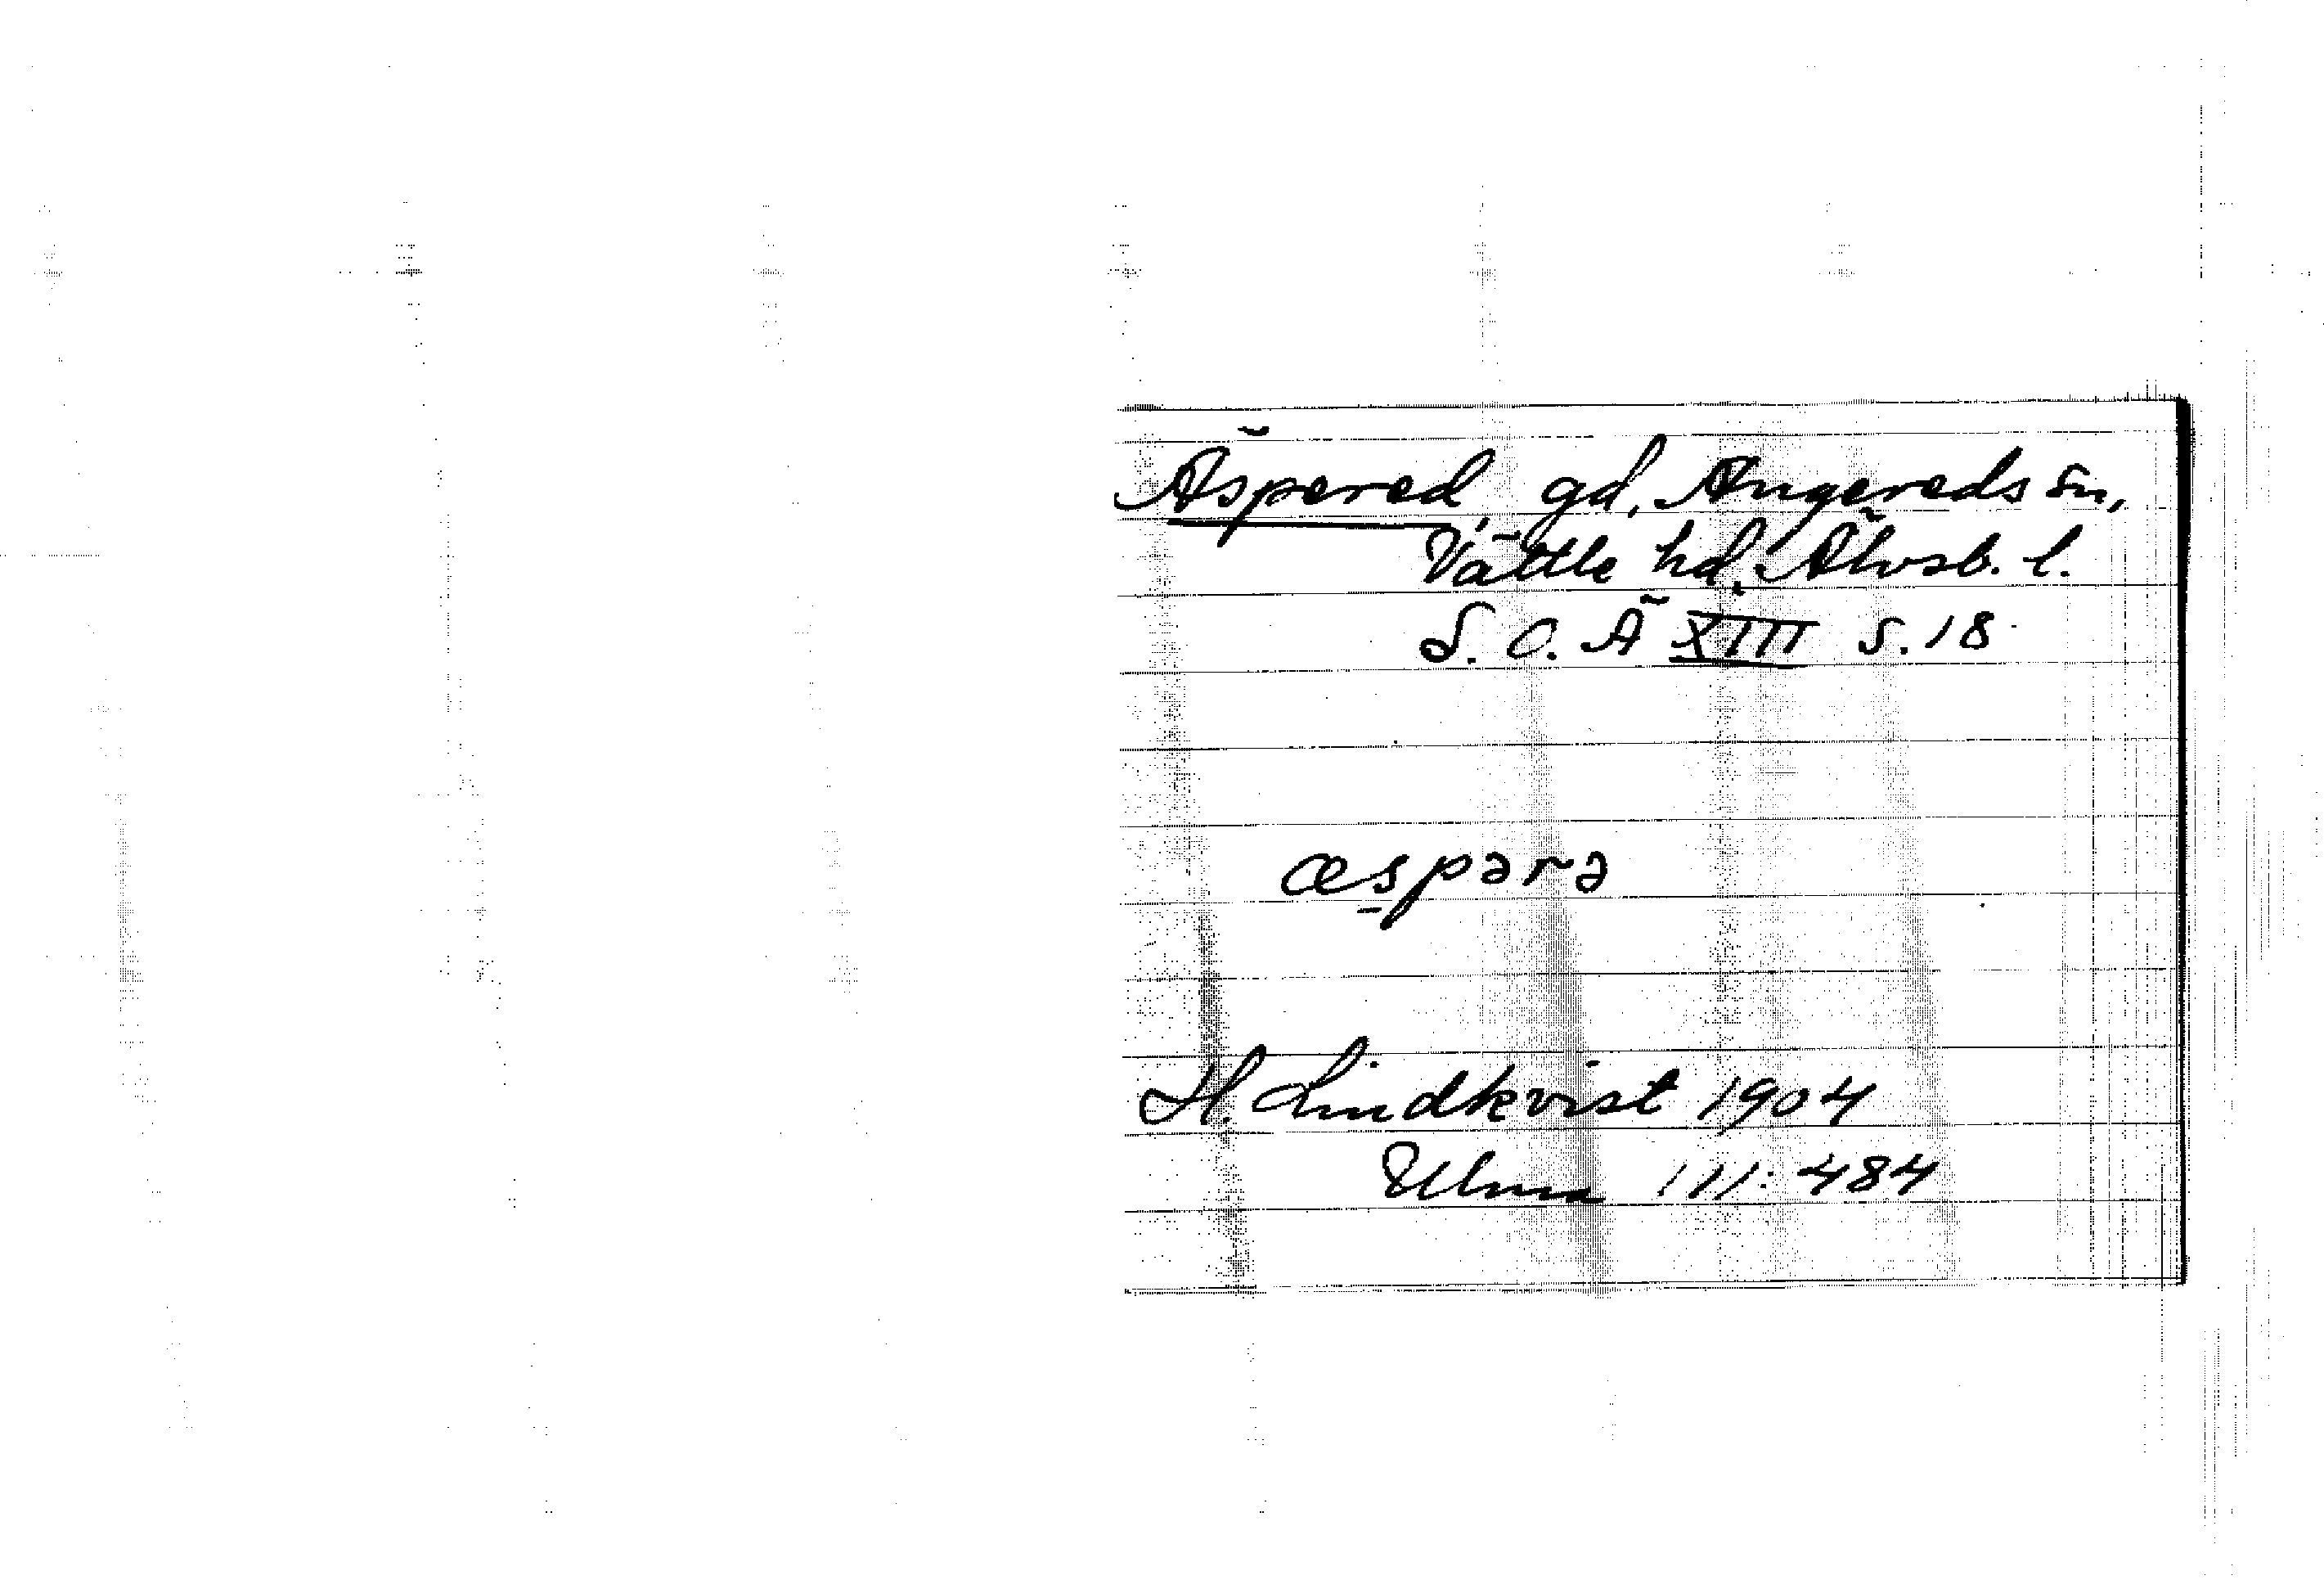 Äspered, gd, Angereds sn,
Vättle hd, Älvsb. l.
S. O. Ä XIII s. 18
æspərə
H. Lindkvist 1904
Ulma 111:484